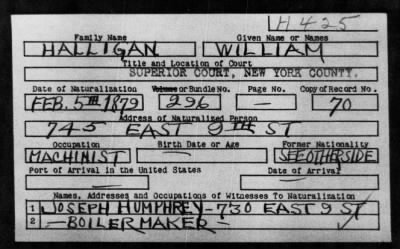 H425
Family Name Given Name or Names
HALLIGAN WILLIAM
Title and Location of Court
SUPERIOR COURT, NEW YORK COUNTY.
Date of Naturalization Volume or Bundle No. Page No. Copy of Record No.
FEB. 5TH 1879 296 — 70
Address of Naturalized Person
745 EAST 9TH ST
Occupation Birth Date or Age Former Nationality
MACHINIST — SEE OTHER SIDE
Port of Arrival in the United States Date of Arrival
— —
Names, Addresses and Occupations of Witnesses To Naturalization
1 JOSEPH HUMPHREY - 730 EAST 9 ST
2 — BOILER MAKER —